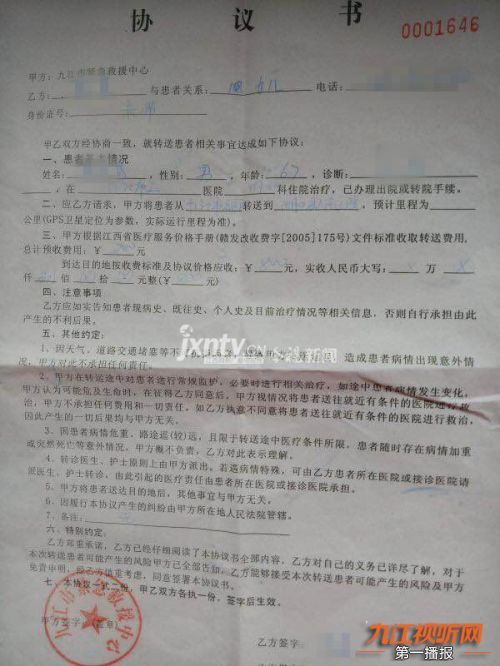 协 议 书
0001646
甲方：九江市紧急救援中心
乙方： 与患者关系： 电话：
身份证号：
甲乙双方经协商一致，就转送患者相关事宜达成如下协议：
一、患者基本情况
姓名： ，性别：男，年龄：67，诊断：
，在 医院 科住院治疗，已办理出院或转院手续。
二、应乙方请求，甲方将患者从 转送到 ，预计里程为
公里(GPS卫星定位为参数，实际运行里程为准)。
三、甲方根据江西省医疗服务价格手册(赣发改收费字[2005]175号)文件标准收取转送费用，
总计预收费用：¥ 元。
到达目的地按收费标准及协议价格应收：¥ 元，实收人民币大写： 万
仟 佰 拾 元整(¥ 元)
四、注意事项
乙方应如实告知患者现病史、既往史、个人史及目前治疗情况等相关信息，否则自行承担由此
产生的不利后果。
五、其他约定：
1、因天气、道路交通堵塞等不 造成患者病情出现意外情
况，甲方对此不承担任何责任。
2、甲方在转送途中对患者进行常规监护，必要时进行相关治疗，如途中患者病情发生变化，
甲方认为可能危及生命时，在征得乙方同意后，甲方视情况将患者送往就近有条件的医院进行救
治，甲方不承担任何费用和一切责任。如乙方执意不同意将患者送往就近有条件的医院进行救治，
因此产生的一切后果均与甲方无关。
3、因患者病情危重、路途远(较)远，且限于转送途中医疗条件所限，患者随时存在病情加重
或突然死亡等意外情况，甲方概不负责，乙方对此表示理解。
4、转诊医生、护士原则上由甲方派出。若遇病情特殊，可由乙方患者所在医院或接诊医院请
派医生、护士转诊，由此引起的医疗责任由患者所在医院或接诊医院承担。
5、甲方将患者送达目的地后，其他事宜与甲方无关。
6、因履行本协议产生的纠纷由甲方所在地人民法院管辖。
7、备注：
六、特别约定：
乙方郑重承诺，乙方已经仔细阅读了本协议书全部内容，乙方对自己的义务已详尽了解，对于
本次转送患者可能产生的风险甲方已全部告知，乙方能够接受本次转送患者可能产生的风险及甲方
免责申明，经乙方慎重考虑，同意签署本协议书。
七、本协议一式二份，甲乙双方各执一份，签字后生效。
甲方签字：(盖章)
乙方签字：
九江市紧急救援中心
jxntv
九江视听网
第一播报